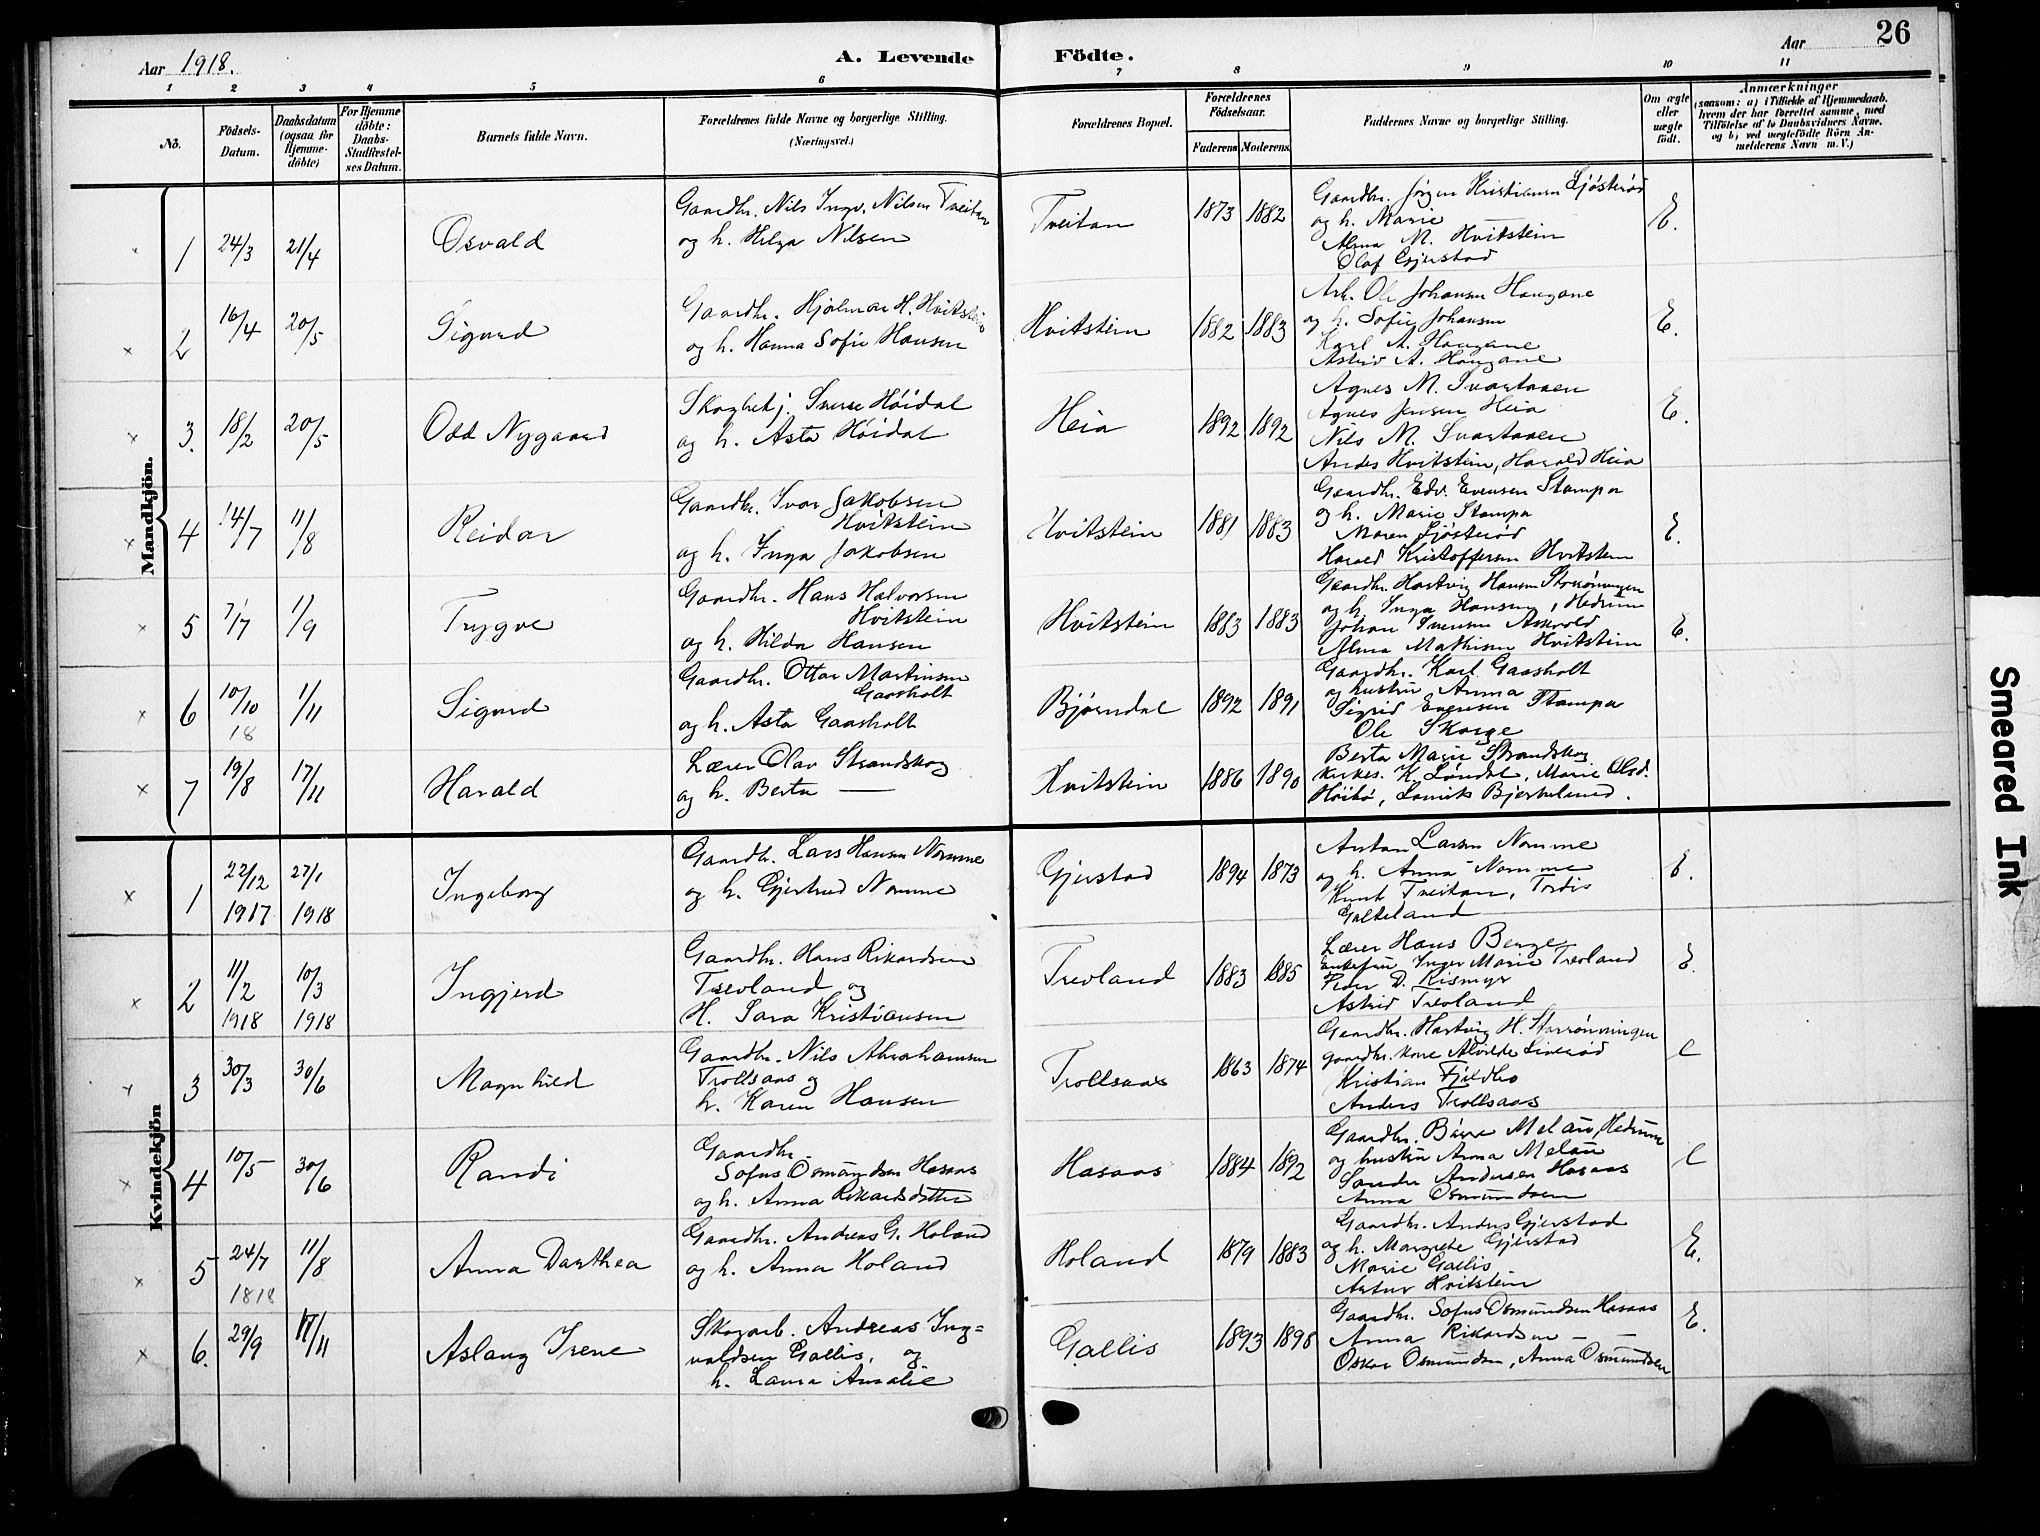 Aar 1918.
A. Levende Födte.
Aar
26
1 2 3 4 5 6 7 8 9 10 11
No.
Födsels-Datum.
Daabsdatum (ogsaa for Hjemmedöbte)
For Hjemmedöbte: Daabs-Stadfæstelses Datum.
Barnets fulde Navn.
Forældrenes fulde Navne og borgerlige Stilling. (Næringsvei.)
Forældrenes Bopæl.
Forældrenes Födselsaar.
Faderens Moderens
Faddernes Navne og borgerlige Stilling.
Om ægte eller uægte födt.
Anmærkninger
(saasom: a) i Tilfælde af Hjemmedaab, hvem der har forrettet samme, med Tilföielse af to Daabsvidners Navne, og b) ved uægtefödte Börn Anmelderens Navn m. V.)
Mandkjön.
1 24/3 21/4 Osvald
Gaardbr. Nils Ingv. Nilsen Treitan
og h. Helga Nilsen
Treitan 1873 1882
Gaardbr. Jörgen Kristiansen Ljösteröd
og h. Marie
Alma M. Hvitstein
Olaf Gjerstad
E.
2 16/4 20/5 Sigurd
Gaardbr. Hjalmar H. Hvitstein
og h. Hanna Sofie Hansen
Hvitstein 1882 1883
Arb. Ole Johansen Haugane
og h. Sofie Johansen
Karl A. Haugane
Astrid A. Haugane
E.
3. 18/2 20/5 Odd Nygaard
Skogbetj. Sverre Höidal
og h. Asta Höidal
Heia 1892 1892
Agnes M. Svartaaen
Agnes Jensen Heia
Nils M. Svartaaen
Andes Hvitstein, Harald Heia
E.
4 14/7 11/8 Reidar
Gaardbr. Ivar Jakobsen
Hvitstein
og h. Inga Jakobsen
Hvitstein 1881 1883
Gaardbr. Edv. Evensen Stampa
og h. Marie Stampa
Maren Ljösteröd
Harald Kristoffersen Hvitstein
E.
5 7/7 1/9 Trygve
Gaardbr. Hans Halvorsen
Hvitstein
og h. Hilda Hansen
Hvitstein 1883 1883
Gaardbr. Hartvig Hansen Storrönningen
og h. Inga Hansen, Hedrum
Johan Svensen Askvold
Alma Mathisen Hvitstein
E.
6 10/10 18 1/11 Sigurd
Gaardbr. Ottar Martinsen
Gaasholt
og h. Asta Gaasholt
Bjørndal 1892 1891
Gaardbr. Karl Gaasholt
og hustru Anna
Sigrid Evensen Stampa
Ole Skorge
7 19/8 17/11 Harald
Lærer Olav Strandskog
og h. Berta —
Hvitstein 1886 1890
Berta Marie Strandskog
Kirkes. K. Løndal, Marie Olsd.
Höibö, Bjerkelund.
Kvindekjön
1 22/12 1917 27/1 1918 Ingeborg
Gaardbr. Lars Hansen Nomme
og h. Gjertrud Nomme
Gjerstad 1894 1873
Anton Larsen Nomme
og h. Anna Nomme
Knut Treitan, Tordis
Galteland
E.
2 11/2 1918 10/3 1918 Ingjerd
Gaardbr. Hans Rikardsen
Trevland og
H. Sara Kristiansen
Trevland 1883 1885
Lærer Hans Berge
Enkefru Inger Marie Trevland
Peder D. Rismyr
Astrid Trevland
E.
3 30/3 30/6 Magnhild
Gaardbr. Nils Abrahamsen
Trollsaas og
h. Karen Hansen
Trollsaas 1863 1874
Gaardbr. Hartvig H. Storrönningen
gaardbr. kone Alvilde Liveröd
Kristian Fjeldbo
Anders Trollsaas
E
4 10/5 30/6 Randi
Gaardbr.
Sofus Osmundsen Hasaas
og h. Anna Rikardsdatter
Hasaas 1884 1892
Gaardbr. Börre Melau, Hedrum
og hustru Anna Melau
Sander Andersen Hasaas
Anna Osmundsen
E
5 24/7 1818 11/8 Anna Darthea
Gaardbr. Andreas G. Holand
og h. Anna Holand
Holand 1879 1883
Gaardbr. Anders Gjerstad
og h. Margrete Gjerstad
Marie Gallis
Artur Hvitstein
E.
6. 29/9 17/11 Aslaug Irene
Skogarb. Andreas Ing=
valdsen Gallis, og
h. Laura Amalie
Gallis 1893 1898
Gaardbr. Sofus Osmundsen Hasaas
Anna Rikardsen — —
Oskar Osmundsen, Anna Osmundsen
E.
Smeared Ink